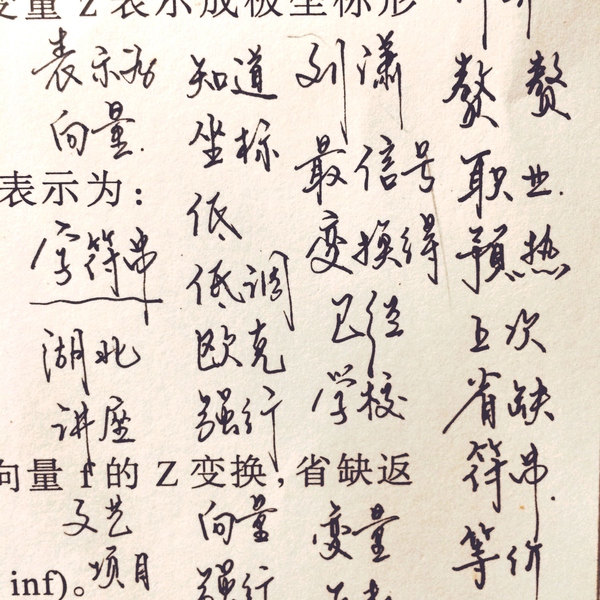 变量 Z 表示成极坐标形
表示为
向量.
表示为:
字符串
湖北
讲座
向量 f 的 Z 变换,省缺返
文艺
inf)。
项目
知道
坐标
低
低调
欧克
强行
向量
强行
刘潇
最信号
变换得
已经
学校
变量
赘 赘
职业.
预热
互次
省缺
符串.
等价